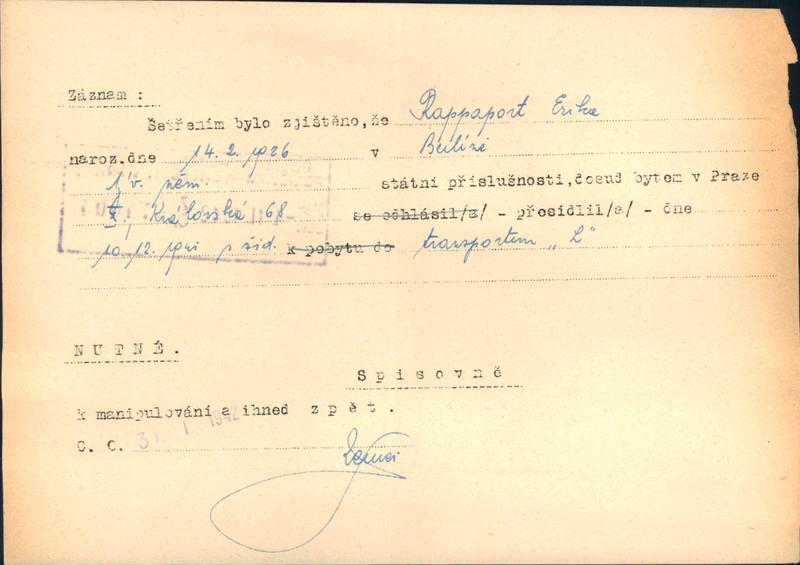 Záznam :
Šetřením bylo zjištěno, že Rappaport Erika
naroz. dne 14. 2. 1926 v Berlíně
býv. něm. státní příslušnosti, dosud bytem v Praze
X, Královská 68 se odhlásil/a/ - přesídlil/a/ - dne
10. 12. 1941 s žid. k pobytu do transportem „L"
NUTNÉ.
Spisovně
k manipulování a ihned zpět.
O. O. 31. 1. 1942